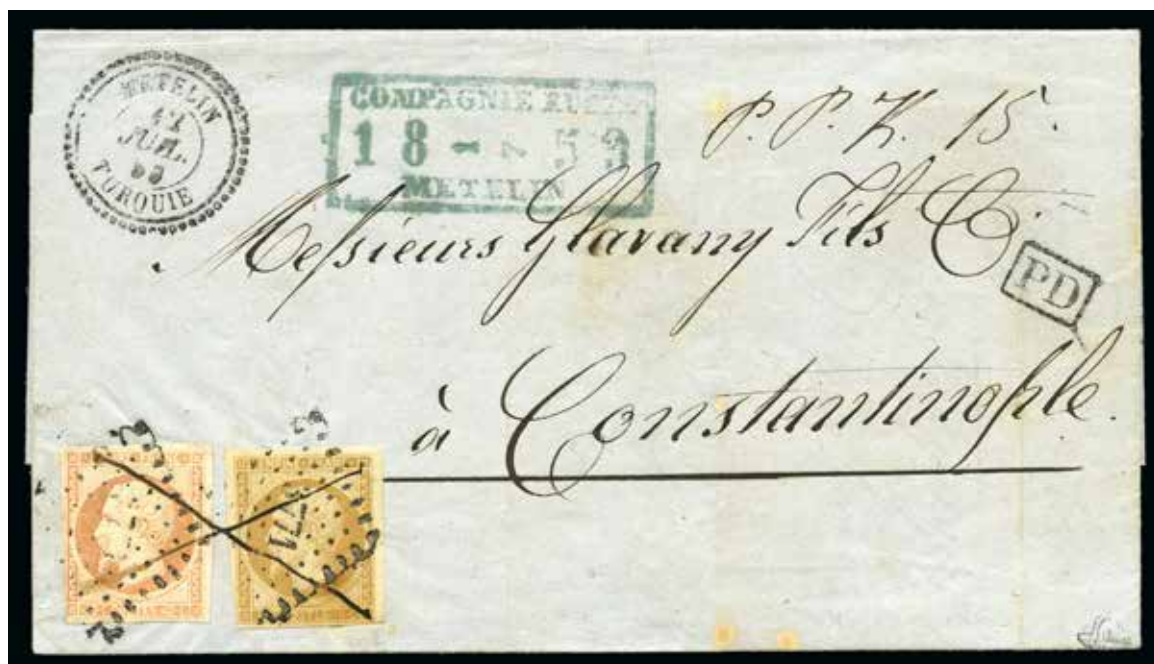 METELIN
JUIL.
TURQUIE
COMPAGNIE RUSSE
18 59
METELIN
P. P. K. 15.
Messieurs Glavany Fils C
PD
à Constantinople.